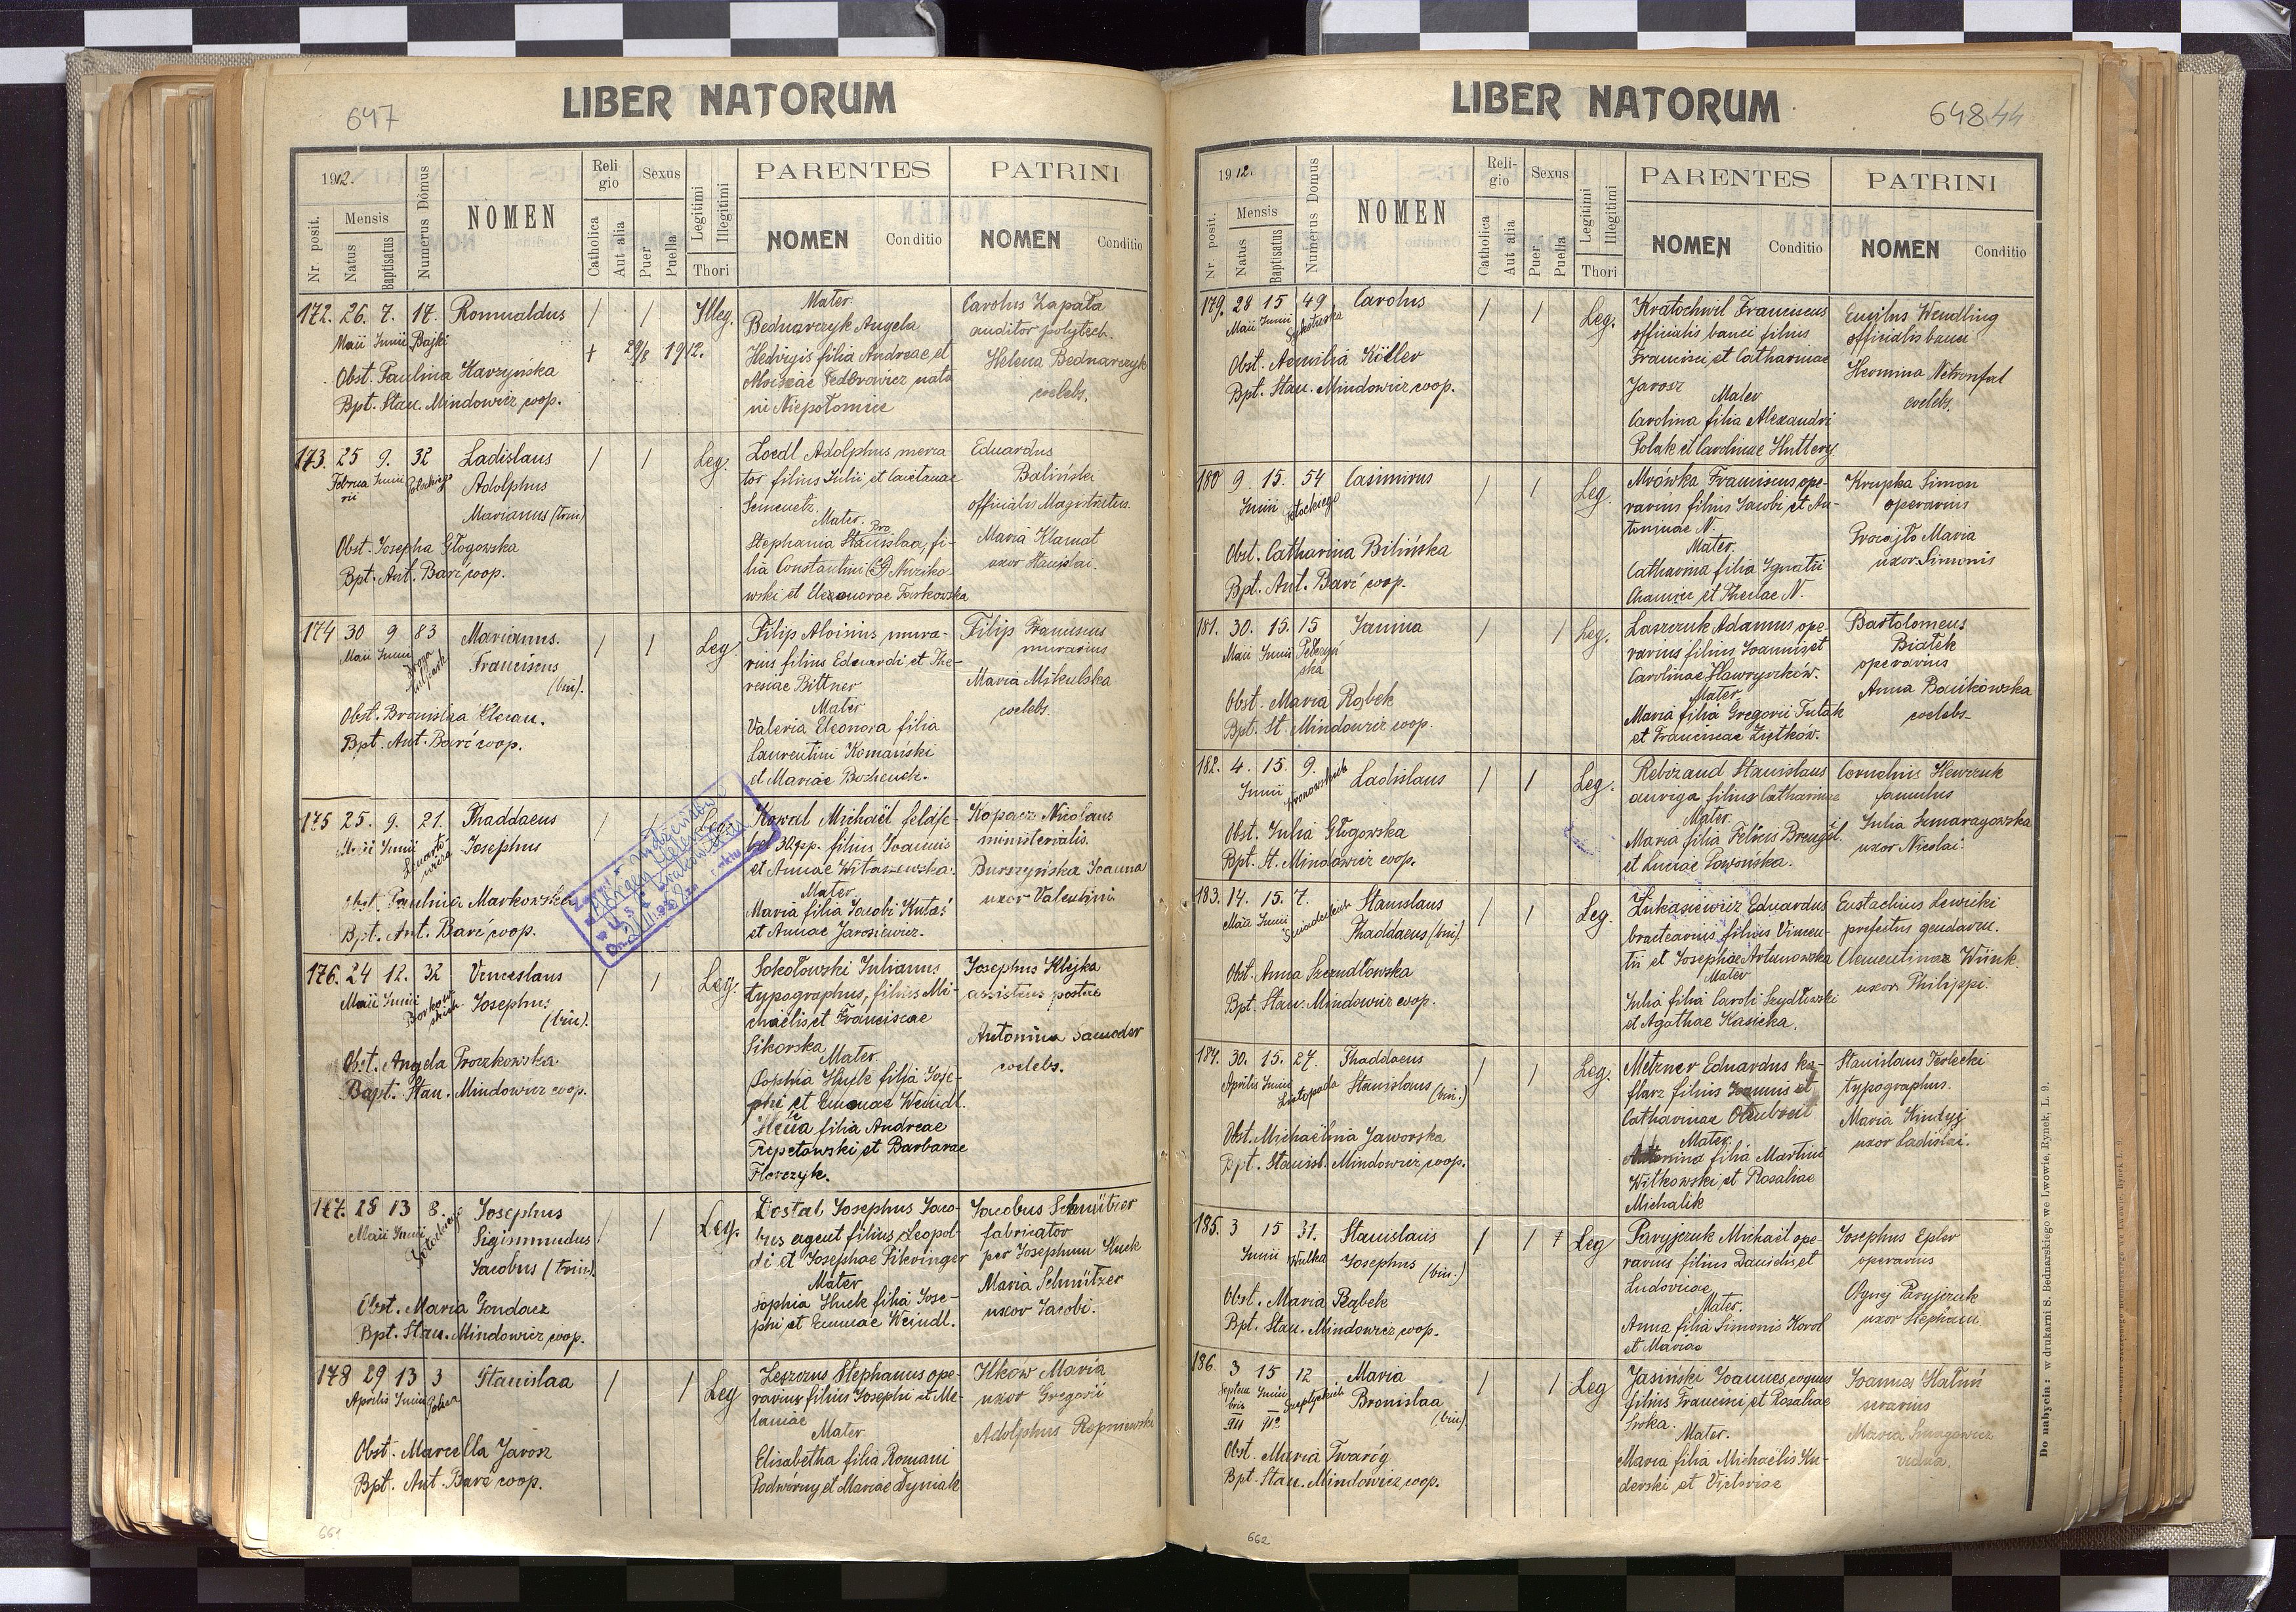 647
LIBER NATORUM
1912.
Nr. posit.
Mensis
Natus
Baptisatus
Numerus Domus
NOMEN
Religio
Catholica
Aut alia
Sexus
Puer
Puella
Legitimi
Illegitimi
Thori
PARENTES
NOMEN
Conditio
PATRINI
NOMEN
Conditio
172. 26. 7. 17. Romualdus / / Illeg.
Maii Junii Bajki
+ 29/8 1912.
Obst. Paulina Harzyńska
Bpt. Stan. Mindowicz coop.
Mater.
Bednarczyk Angela
Hedvigis filia Andreae et
Moiseae Fedorowicz nata
in Niepołomice
Carolus Zapała
auditor polytech.
Helena Bednarczyk
coelebs.
173. 25 9. 32 Ladislaus / / Leg.
Februarii Junii
Adolphus
Marianus (trin)
Obst. Josepha Głogowska
Bpt. Ant. Barć coop.
Loedl Adolphus, merca
tor filius Julii et Caietanae
Semenetz.
Mater. Bro
Stephania Stanislaa, fi-
lia Constantini
wski et Eleonorae Tarkowska
Eduardus
Baliński
officialis Magistratus.
Maria Klamut
uxor Stanislai.
174 30 9 83 Marianus. / / Leg.
Maii Junii
Franciscus
(bin).
Obst. Bronislaa Klecan.
Bpt. Ant. Barć coop.
Filip Aloisius, mura-
rius filius Eduardi et The-
resiae Bittner
Mater
Valeria Eleonora filia
Laurentini Komański
et Mariae Bozheuck.
Filip Franciscus
murarius
Maria Mikulska
coelebs.
175 25. 9. 21. Thaddaeus / / Leg.
Maii Junii
Josephus
Obst. Paulina Markowska
Bpt. Ant. Barć coop.
Kowal Michaël feldfe-
bel 30 pp. filius Joannis
et Annae Witaszewska.
Mater
Maria filia Jacobi Kutaś
et Annae Jarosiewicz.
Kopacz Nicolaus
ministerialis.
Burszyńska Joanna
uxor Valentini
176. 24 12. 32 Venceslaus / / Leg.
Maii Junii Borkowskich
Josephus
(bin).
Obst. Angela Proczkowska.
Bapt. Stan. Mindowicz coop.
Sokołowski Julianus
typographus, filius Mi-
chaëlis et Franciscae
Sikorska
Mater
Sophia Huck filia Jose-
phi et Emmae Weindl.
filia Andreae
Trepetowski et Barbarae
Florczyk.
Josephus Klijka
assistens postae
Antonina Samoder
coelebs.
177. 28 13 8. Josephus / / Leg.
Maii Junii
Sigismundus
Jacobus (trin).
Obst. Maria Gondacz
Bpt. Stan. Mindowicz coop.
Dostal Josephus Jaco-
bus agent filius Leopol-
di et Josephae Pikvinger
Mater
Sophia Huck filia Jose-
phi et Emmae Weindl.
Jacobus Schmützer
fabricator
per Josephum Huck
Maria Schmützer
uxor Jacobi.
178 29 13 3 Stanislaa / / Leg
Aprilis Junii
Obst. Marcella Jarosz
Bpt. Ant. Barć coop.
Leszczus Stephanus ope-
rarius filius Josephi et Me-
laniae
Mater
Elisabetha filia Romani
Podwórny et Mariae Dyniak
Ilkow Maria
uxor Gregorii
Adolphus Ropniewski
661
648 44
LIBER NATORUM
1912.
Nr. posit.
Mensis
Natus
Baptisatus
Numerus Domus
NOMEN
Religio
Catholica
Aut alia
Sexus
Puer
Puella
Legitimi
Illegitimi
Thori
PARENTES
NOMEN
Conditio
PATRINI
NOMEN
Conditio
179. 28 15 49 Carolus / / Leg.
Maii Junii Sykstuska
Obst. Aemilia Köller
Bpt. Stan. Mindowicz coop.
Kratochwil Franciscus
officialis banci filius
Francisci et Catharinae
Jarosz
Mater
Carolina filia Alexandri
Polak et Carolinae Huttery
Emilus Wendling
officialis banci
Hermina Netronfal
coelebs.
180 9. 15. 54 Casimirus / / Leg.
Junii Potockiego
Obst. Catharina Bilińska
Bpt. Ant. Barć coop.
Mrówka Franciscus ope-
rarius filius Jacobi et An-
toninae N.
Mater.
Catharina filia Ignatii
et Theclae N.
Krupka Simon
operarius
Prociajło Maria
uxor Simonis
181. 30. 15. 15 Janina / / Leg.
Maii Junii Pełczyńska
Obst. Maria Rąbek
Bpt. St. Mindowicz coop.
Laszczuk Adamus ope-
rarius filius Joannis et
Carolinae Hawryszków.
Mater
Maria filia Gregorii Tutak
et Francisae Ziętków.
Bartolomeus
Białek
operarius
Anna Bańkowska
coelebs
182. 4. 15. 9. Ladislaus / / Leg.
Junii
Obst. Julia Głogowska
Bpt. St. Mindowicz coop.
Rebizand Stanislaus
auriga filius Catharinae
Mater
Maria filia Felicis
et Luciae Ławońska.
Cornelius Hewczuk
famulus
Julia Szmaragowska
uxor Nicolai.
183. 14. 15. 7. Stanislaus / / Leg.
Maii Junii Śniadeckich
Thaddaeus (bin).
Obst. Anna Szczudłowska
Bpt. Stan. Mindowicz coop.
Łukasiewicz Eduardus
bractearius filius Vincen-
tii et Josephae Artunowska
Mater
Julia filia Caroli Szydłowski
et Agathae Kasicka.
Eustachius Lewicki
prefectus gendarm.
Clementina Wiink
uxor Philippi.
184. 30. 15. 27. Thaddaeus / / Leg.
Aprilis Junii Listopada
Stanislaus (bin.)
Obst. Michaëlina Jaworska
Bpt. Stanisl. Mindowicz coop.
Metzner Eduardus ka-
flarz filius Joannis et
Catharinae
Mater
Antonina filia Martini
Witkowski et Rosaliae
Michalik
Stanislaus Terlecki
typographus.
Maria Kindyj
uxor Ladislai.
185. 3 15 31. Stanislaus / / Leg
Junii Wulka
Josephus (bin.)
Obst. Maria Rąbek
Bpt. Stan. Mindowicz coop.
Paryjczuk Michaël ope-
rarius filius Danielis et
Ludovicae
Mater.
Anna filia Simonis Korol
et Mariae
Josephus Epler
operarius
Paryjczuk
uxor Stephani
186. 3 15 12 Maria / / Leg
Septembris Junii Szeptyckich
911 912
Bronislaa
(bin)
Obst. Maria Twaróg
Bpt. Stan. Mindowicz coop.
Jasiński Joannes coquus
filius Francisci et Rosaliae
Sroka.
Mater.
Maria filia Michaëlis Ku-
derski et Victoriae
Joannes Hałuń
serarius
Maria
vidua.
Do nabycia: w drukarni S. Bednarskiego we Lwowie, Rynek, L. 9.
662